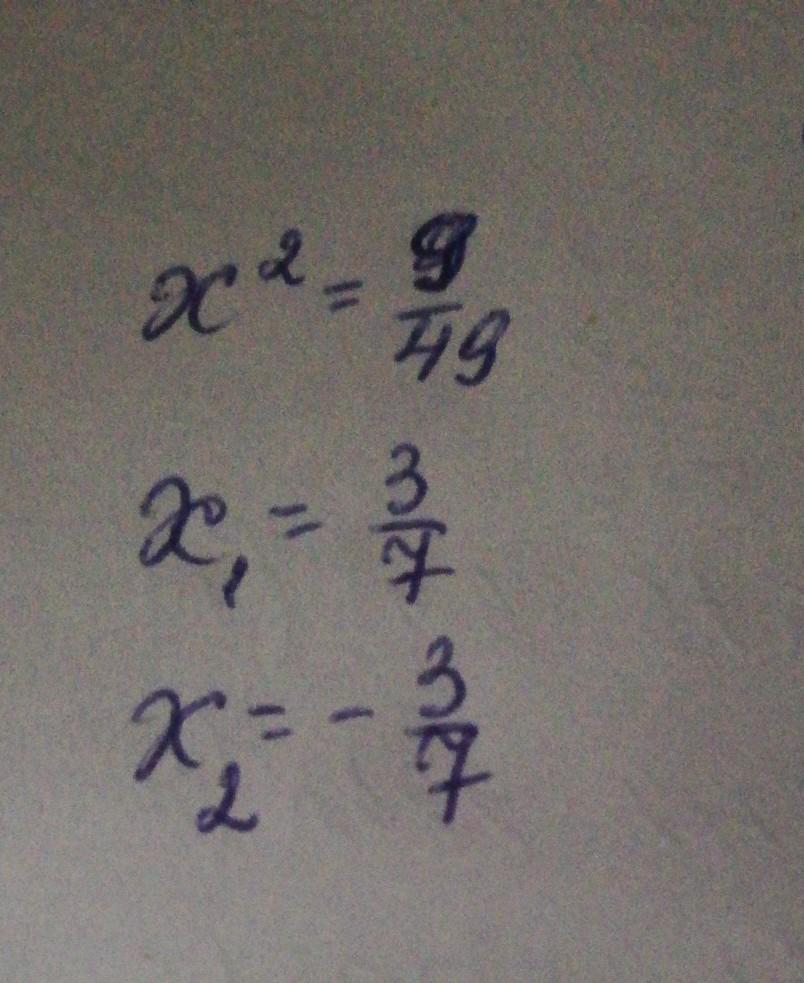 x² = 9/49
x₁ = 3/7
x₂ = - 3/7